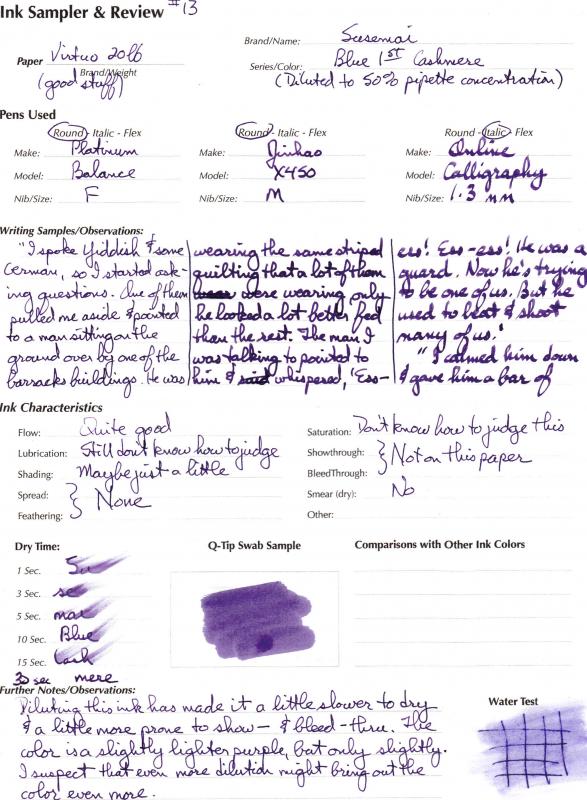 Ink Sampler & Review #13
Brand/Name: Susemai
Paper Virtuo 20lb
Brand/Weight
(good stuff)
Series/Color: Blue 1st Cashmere
(Diluted to 50% pipette concentration)
Pens Used
Round - Italic - Flex
Make: Platinum
Model: Balance
Nib/Size: F
Round - Italic - Flex
Make: Jinhao
Model: X450
Nib/Size: M
Round - Italic - Flex
Make: Online
Model: Calligraphy
Nib/Size: 1.3 mm
Writing Samples/Observations:
"I spoke Yiddish & some
German, so I started ask-
ing questions. One of them
pulled me aside & pointed
to a man sitting on the
ground over by one of the
barracks buildings. He was
wearing the same striped
quilting that a lot of them
were wearing only
he looked a lot better fed
than the rest. The man I
was talking to pointed to
him & said whispered, 'Ess-
ess! Ess-ess! He was a
guard. Now he's trying
to be one of us. But he
used to beat & shoot
many of us.'
"I calmed him down
& gave him a bar of
Ink Characteristics
Flow: Quite good
Lubrication: Still don't know how to judge
Shading: Maybe just a little
Spread:
Feathering:
} None
Saturation: Don't know how to judge this
Showthrough:
BleedThrough:
} Not on this paper
Smear (dry): No
Other:
Dry Time:
1 Sec. Su
3 Sec. se
5 Sec. mai
10 Sec. Blue
15 Sec. Cash
30 sec mere
Q-Tip Swab Sample
Comparisons with Other Ink Colors
Further Notes/Observations:
Diluting this ink has made it a little slower to dry
& a little more prone to show- & bleed-thru. The
color is a slightly lighter purple, but only slightly.
I suspect that even more dilution might bring out the
color even more.
Water Test